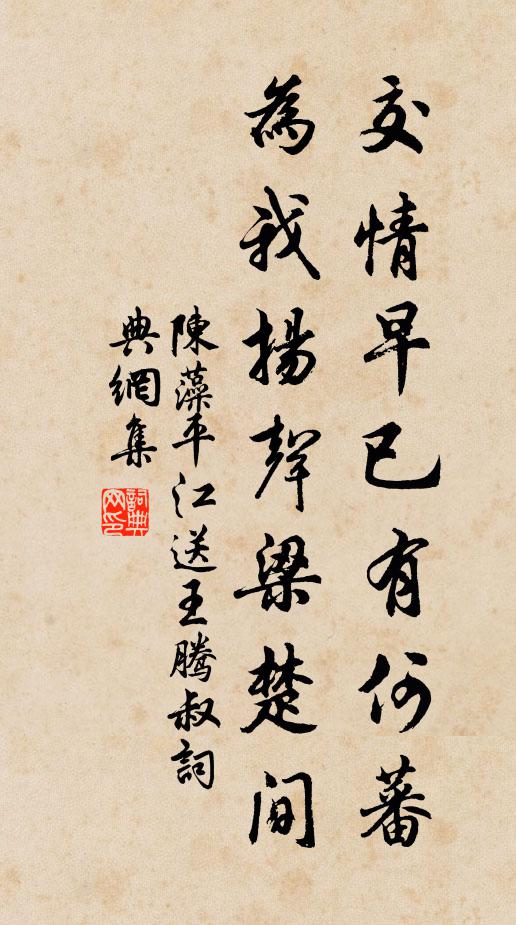 交情早已有何蕃
為我揚聲梁楚間
陳藻平江送王騰叔詞
典網集
詞典網印